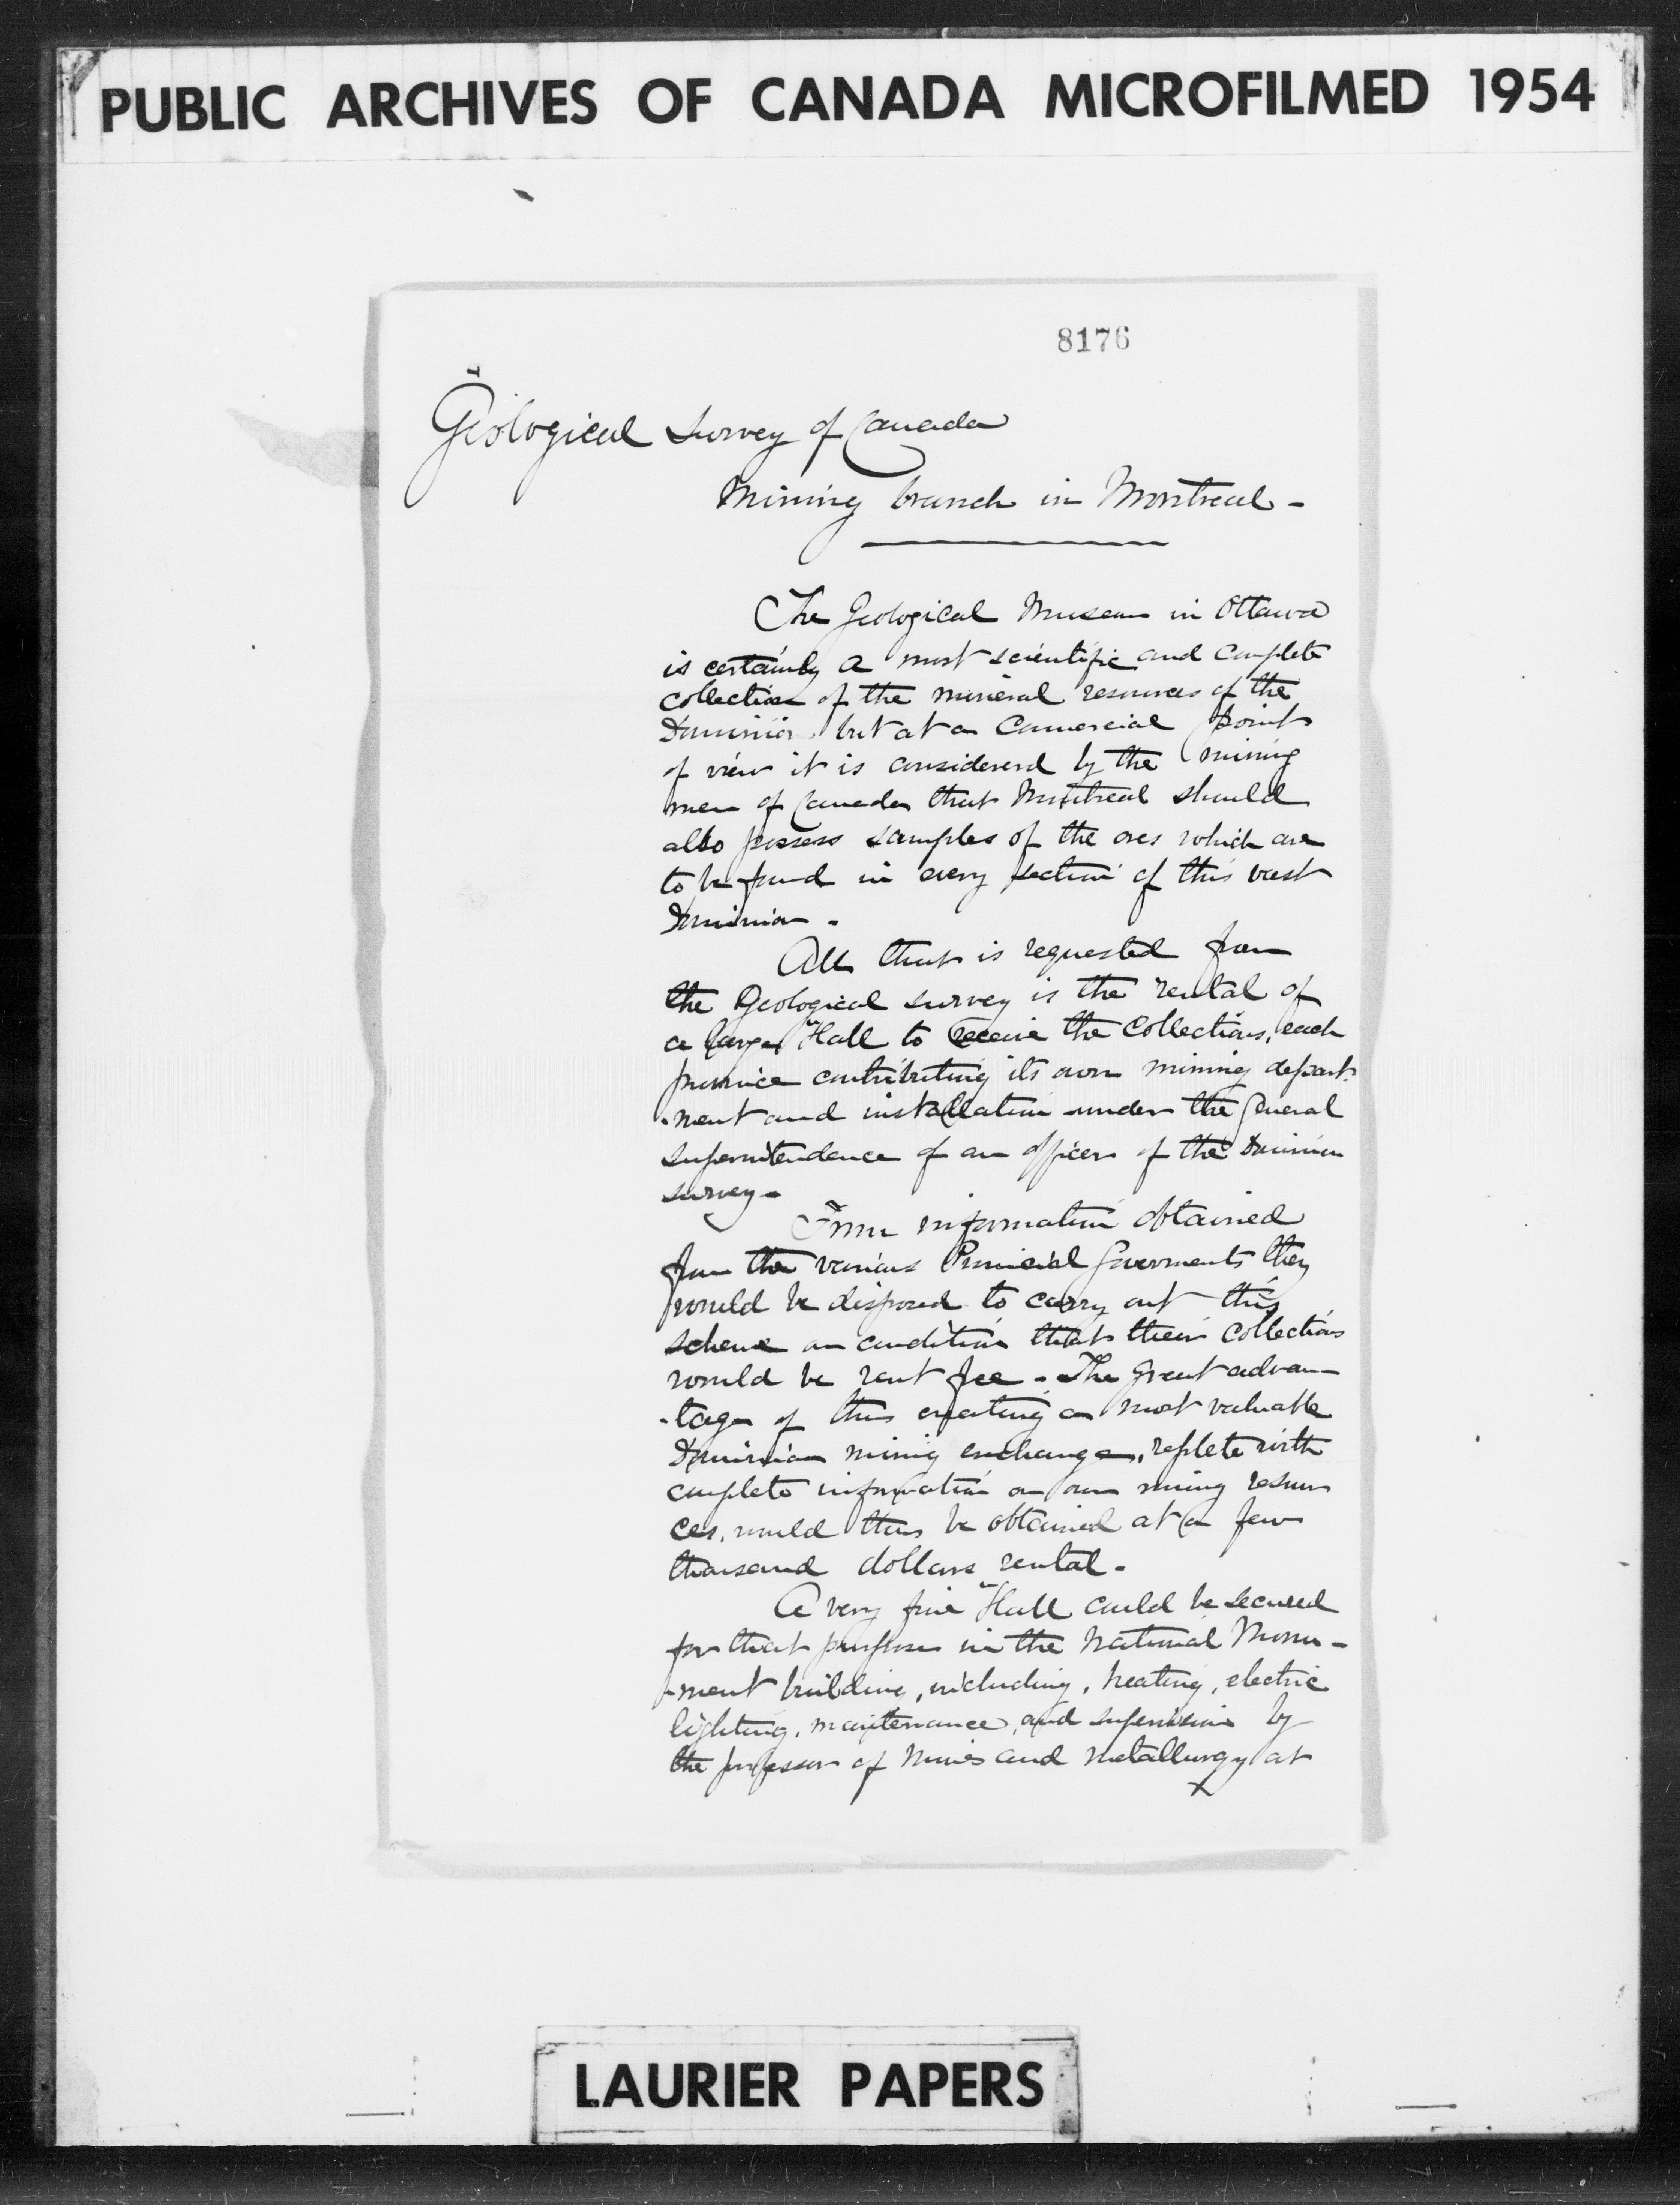 PUBLIC ARCHIVES OF CANADA MICROFILMED 1954
8176
Geological Survey of Canada
Mining branch in Montreal -
The Geological Museum in Ottawa
is certainly a most scientific and complete
collection of the mineral resources of the
Dominion but at a Comercial point
of view it is considererd by the mining
men of Canada that Montreal should
also possess samples of the ores which are
to be found in every section of this vast
Dominion -
All that is requested from
the Geological survey is the rental of
a large Hall to receive the Collections, each
province contributing its own mining depart-
-ment and installation under the general
superintendence of an officer of the Dominion
survey -
From information obtained
from the various Provincial Goverments they
would be disposed to carry out this
scheme on condition that their Collections
would be rent free - The great advan-
-tage of thus creating a most valuable
Dominion mining exchange, replete with
complete information on our mining resour
ces, would thus be obtained at a few
thousand dollars rental -
A very fine Hall could be secured
for that purpose in the National Monu-
-ment building, including, heating, electric
lighting, maintenance, and supervision by
the professor of Mines and Metallurgy at
LAURIER PAPERS